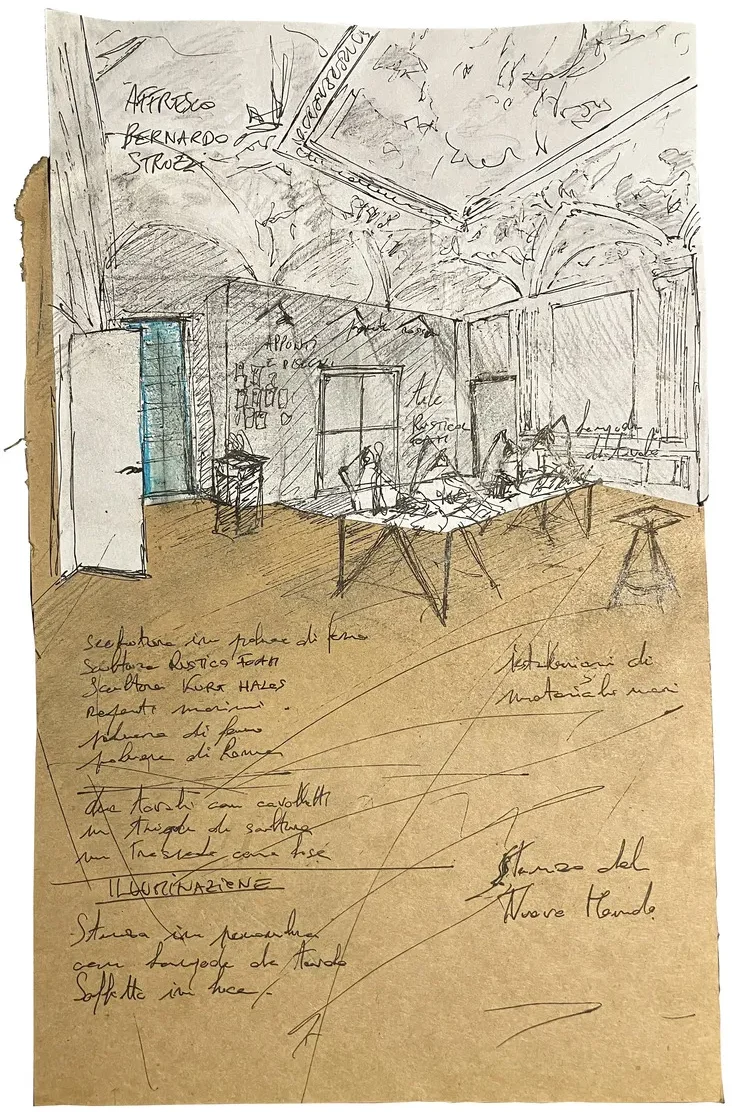 AFFRESCO
BERNARDO
STROZZI
APPUNTI
E DISEGNI
RUSTICO
FOAM
lampade
da tavolo
in polvere di ferro
Scultura RUSTICO FOAM
Scultura KURT
Reperti marini
polvere di ferro
polvere di Rame
due tavoli con cavalletti
un trespolo da scultura
un Trespolo come base
ILLUMINAZIONE
Stanza in penombra
con lampade da tavolo
Soffitto in luce.
installazioni di
materiali
Stanza del
Nuovo Mondo